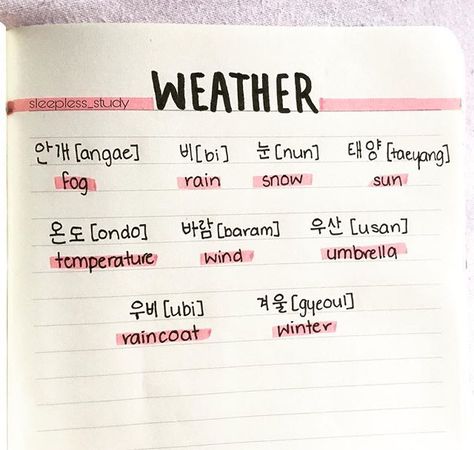 WEATHER
sleepless_study
안개 [angae] 비 [bi] 눈 [nun] 태양 [taeyang]
fog rain snow sun
온도 [ondo] 바람 [baram] 우산 [usan]
temperature wind umbrella
우비 [ubi] 겨울 [gyeoul]
raincoat winter